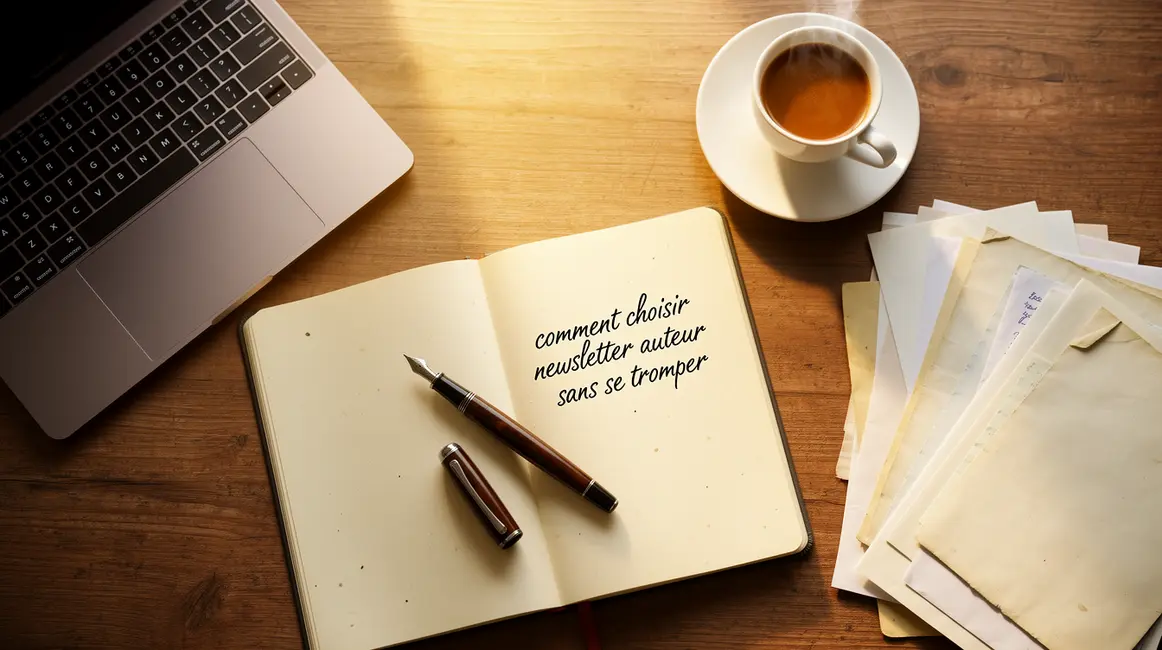 comment choisir
newsletter auteur
sans se tromper